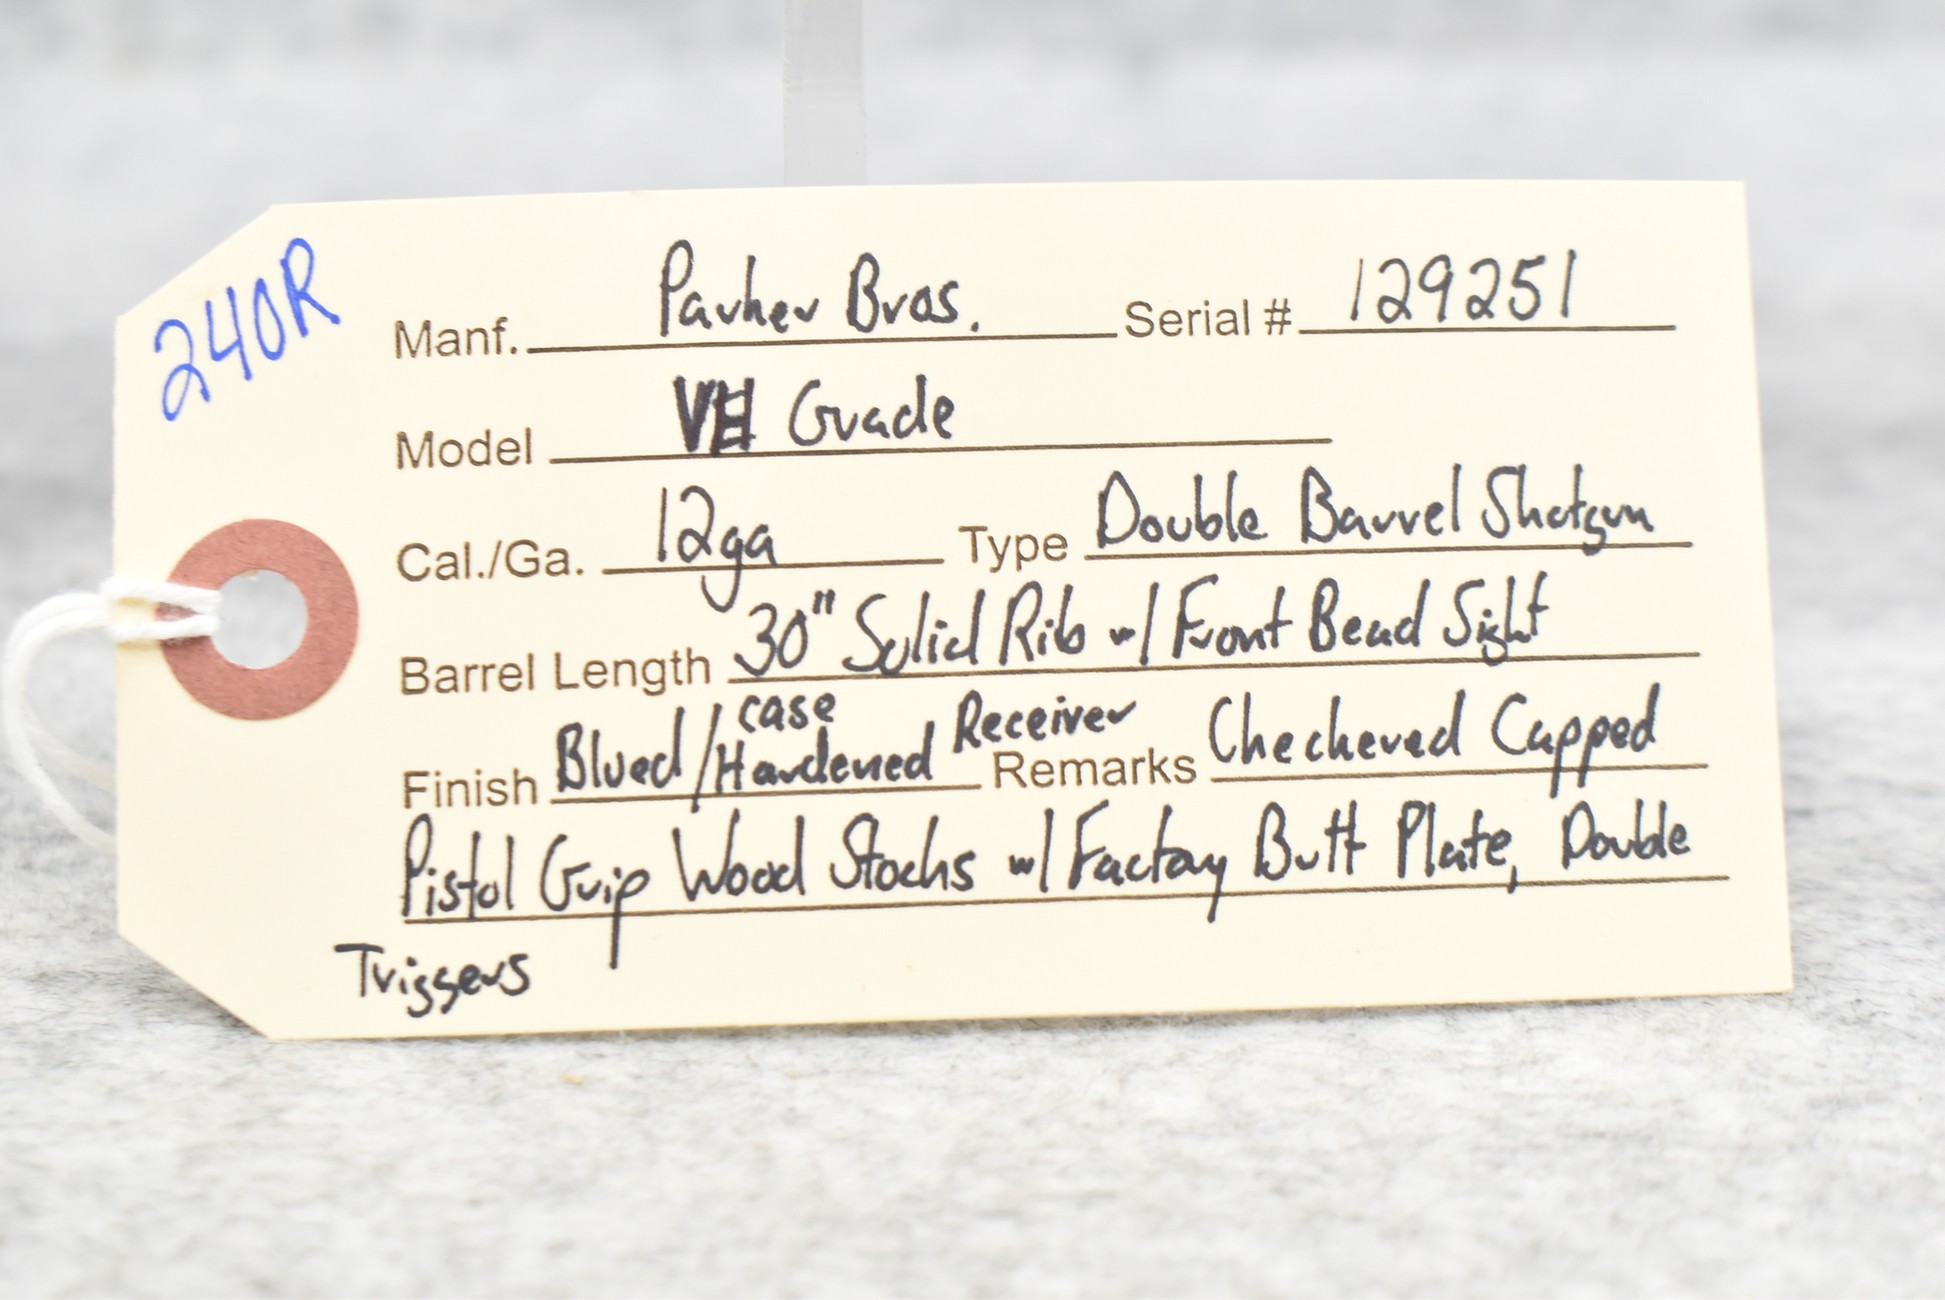 240R
Manf. Parker Bros. Serial # 129251
Model VH Grade
Cal./Ga. 12ga Type Double Barrel Shotgun
Barrel Length 30" Solid Rib w/ Front Bead Sight
Finish Blued/case Hardened Receiver Remarks Checkered Capped
Pistol Grip Wood Stocks w/ Factory Butt Plate, Double
Triggers